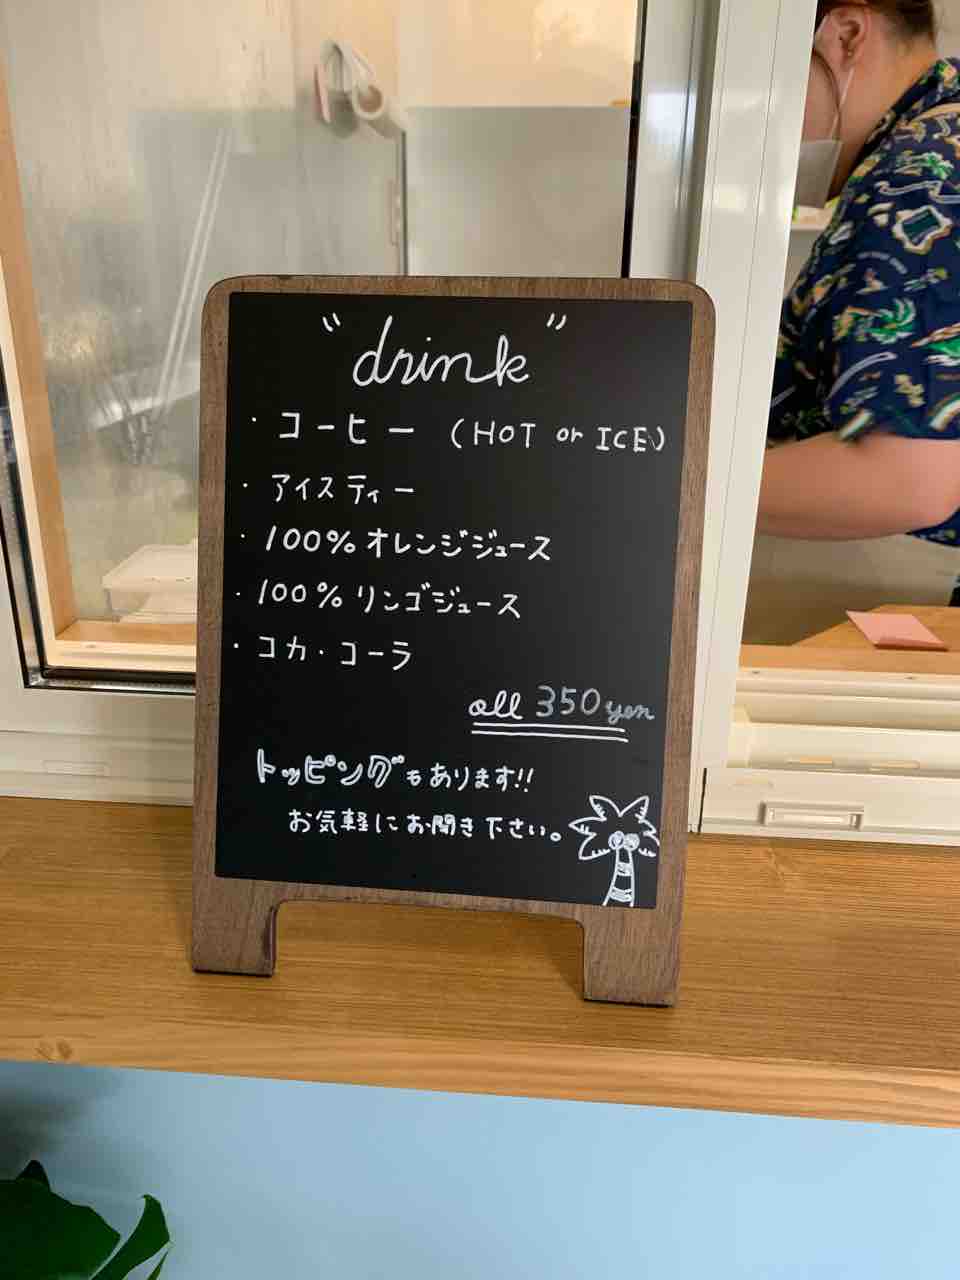 "drink"
・コーヒー (HOT or ICE)
・アイスティー
・100%オレンジジュース
・100%リンゴジュース
・コカ・コーラ
all 350yen
トッピングもあります!!
お気軽にお聞き下さい。